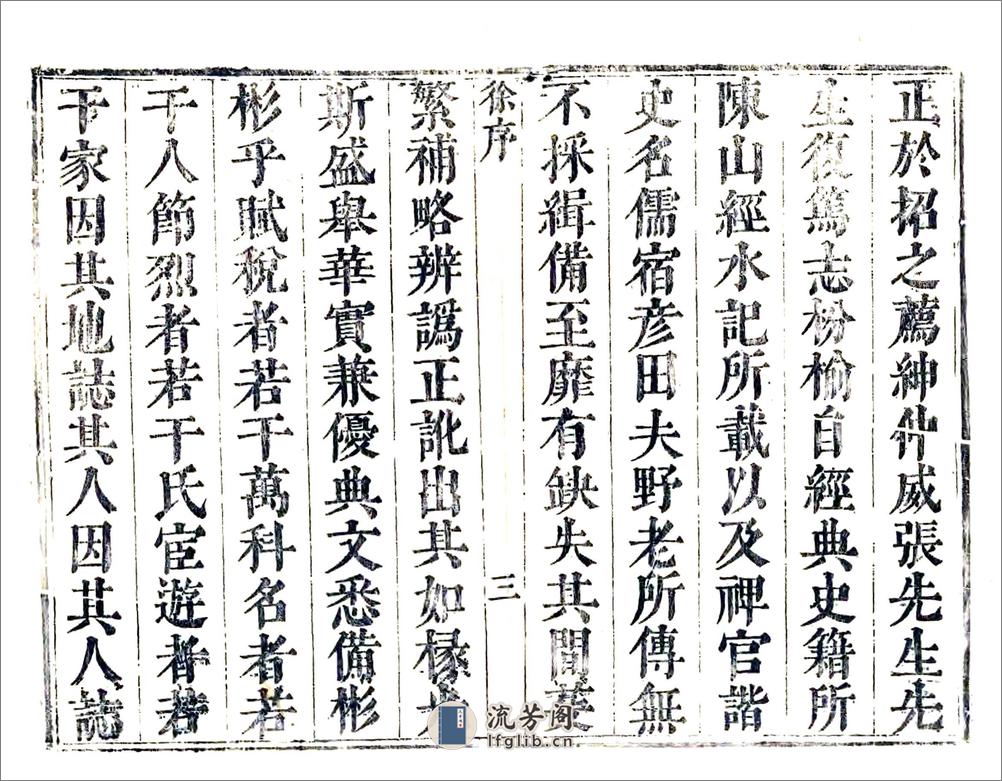 正於招之薦紳仲威張先生先
生復篤志枌榆自經典史籍所
陳山經水記所載以及稗官諧
史名儒宿彥田夫野老所傳無
不採緝備至靡有缺失其間
徐序
三
繁補略辨譌正訛出其如椽
斯盛舉華實兼優典文悉備彬
彬乎賦稅者若干萬科名者若
干人節烈者若干氏宦遊者若
干家因其地誌其人因其人誌
流芳阁
lfglib.cn